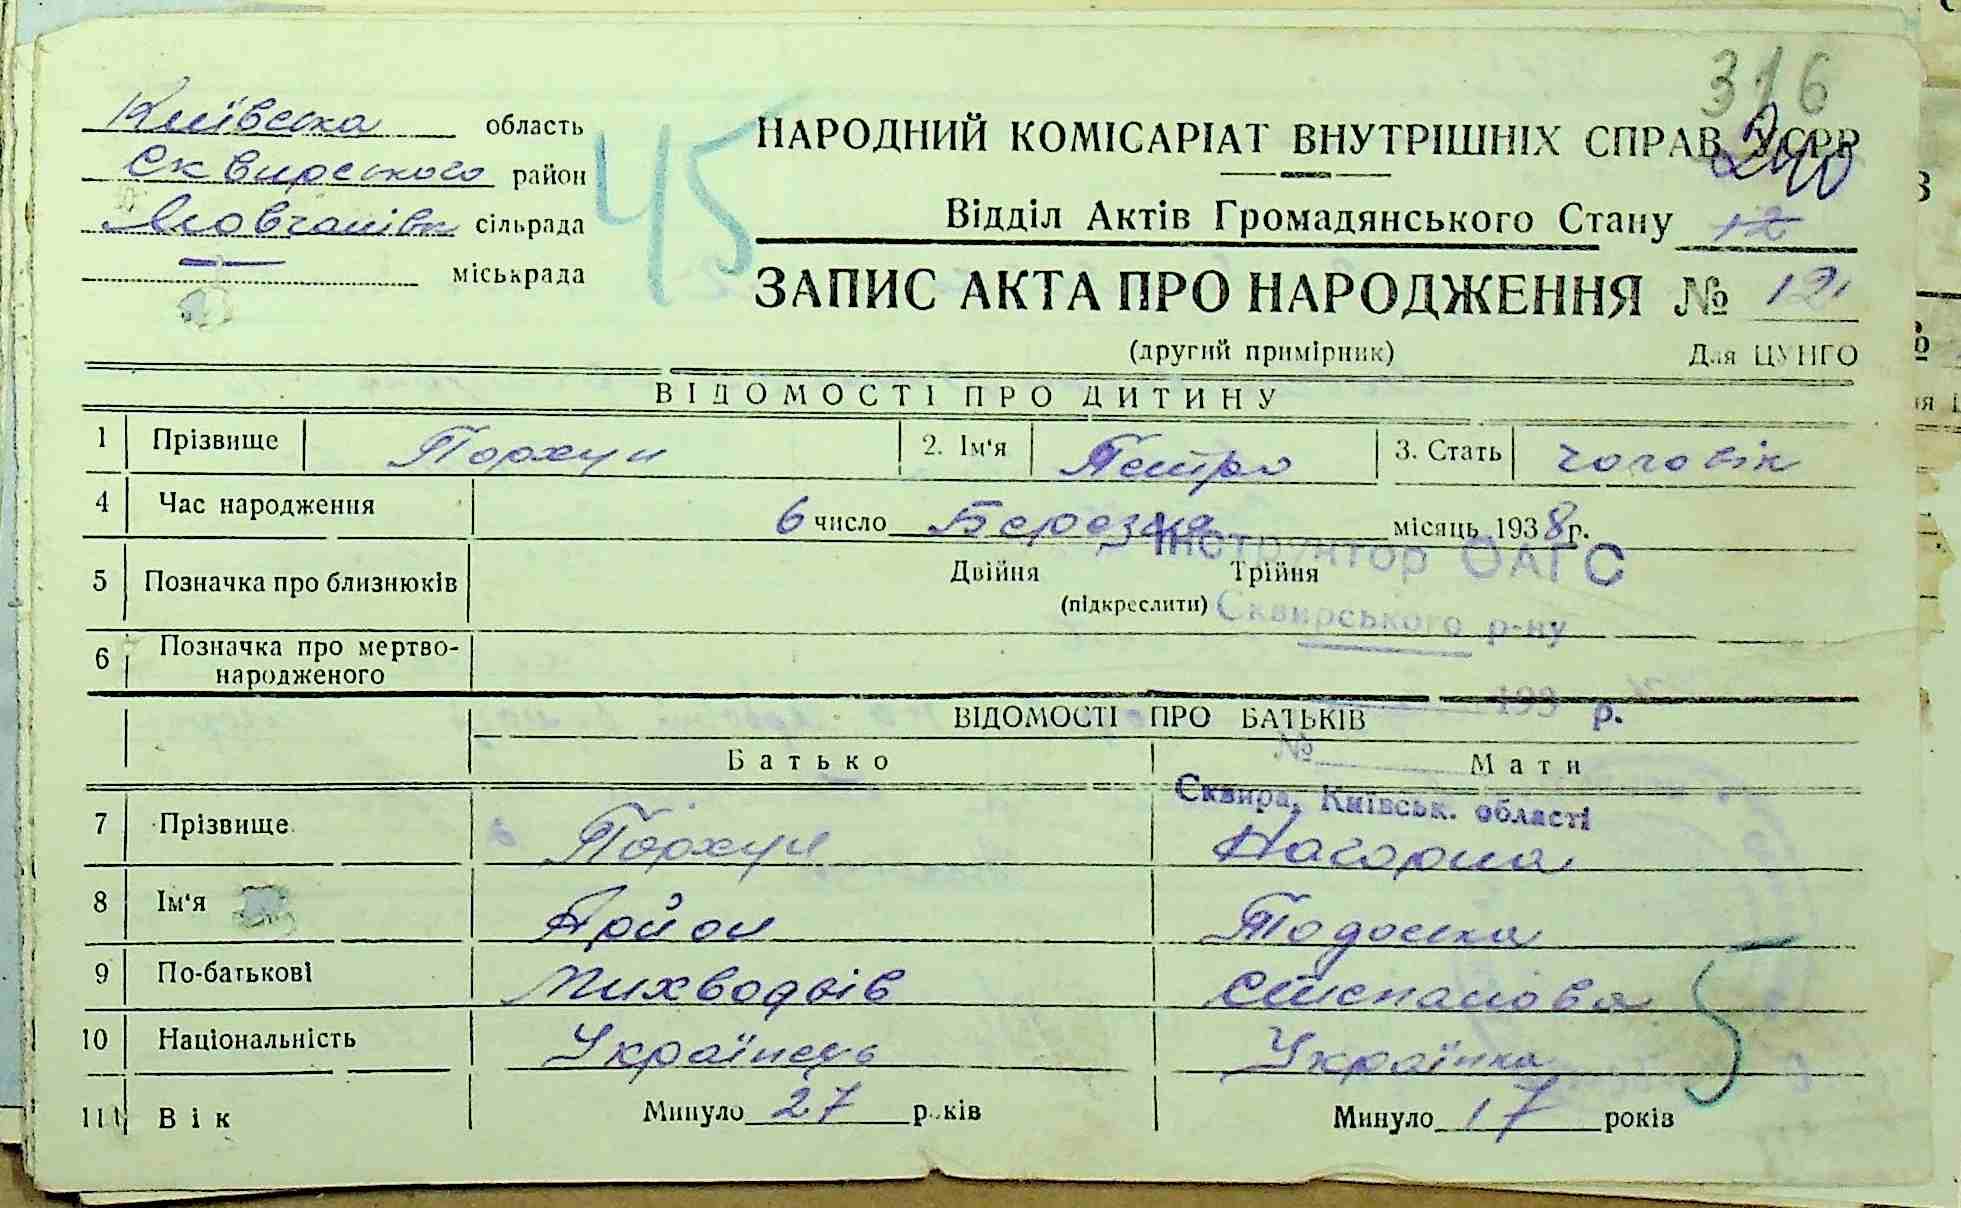 316
Київська область
Сквирського район
Мовчанівк сільрада
міськрада
45
НАРОДНИЙ КОМІСАРІАТ ВНУТРІШНІХ СПРАВ УСРР
240
Відділ Актів Громадянського Стану 12
ЗАПИС АКТА ПРО НАРОДЖЕННЯ № 12
(другий примірник) Для ЦУНГО
ВІДОМОСТІ ПРО ДИТИНУ
1 Прізвище Порхун 2. Ім'я Петро 3. Стать чоловік
4 Час народження 6 число Березня місяць 1938 р.
Інструктор ОАГС
5 Позначка про близнюків Двійня Трійня
(підкреслити) Сквирського р-ну
6 Позначка про мертво-
народженого
193 р.
ВІДОМОСТІ ПРО БАТЬКІВ
Батько № Мати
Сквира, Київськ. області
7 Прізвище Порхун Нагорна
8 Ім'я Тодоска
9 По-батькові Степанова
10 Національність Українець Українка
11 Вік Минуло 27 років Минуло 17 років
5